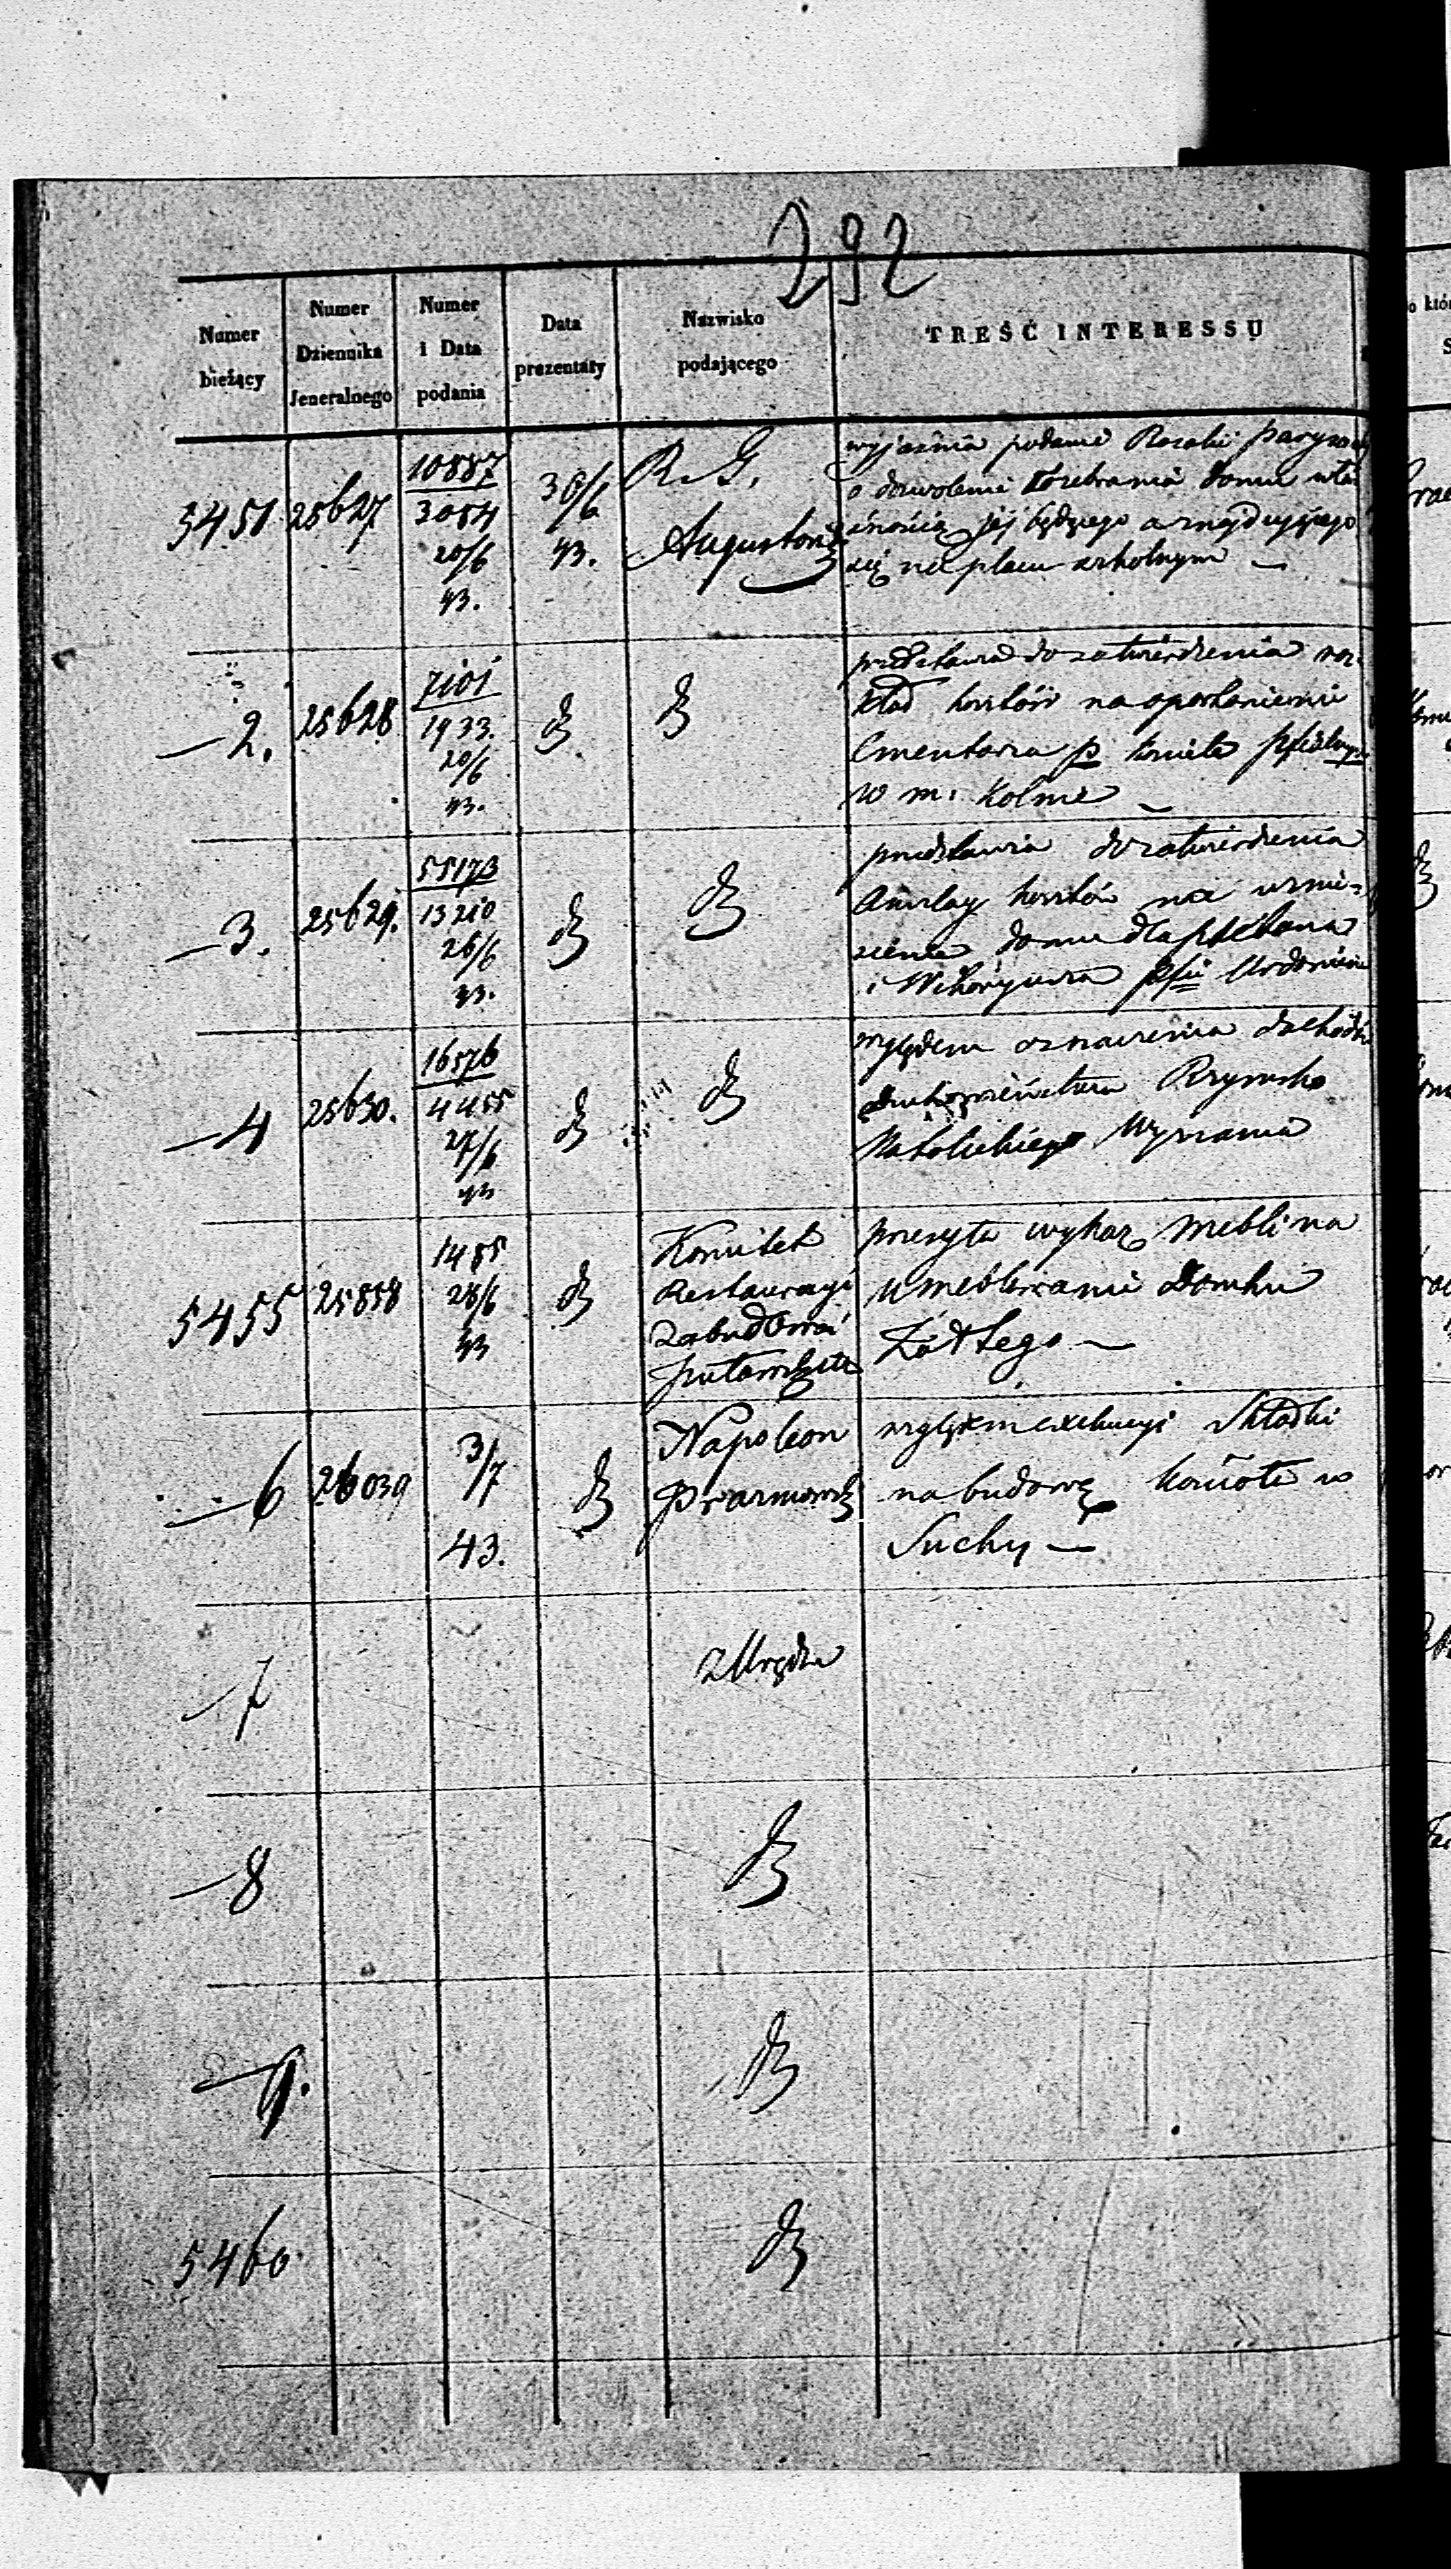 292
Numer bieżący
Numer Dziennika Jeneralnego
Numer i Data podania
Data prezentaty
Nazwisko podającego
TREŚĆ INTERESSU
5451
25627
10887
3084
20/6
43.
30/6
43.
R. G.
Augustows
wyjaśnia podanie Rozalii
o dozwolenie rozebrania domu wła
snością jéj będącego a znajdującego
się na placu szkolnym —
—2.
25628
7101
1933.
20/6
43.
do
do
przedstawia do zatwierdzenia roz-
kład kosztów na oparkanienie
Cmentarza p. kościele
w m. Kolnie —
—3.
25629.
55173
13210
26/6
43.
do
do
przedstawia do zatwierdzenia
Anszlag kosztów na wznie-
sienie domu dla plebana
i Wikaryusza
—4
25630.
16576
4455
27/6
43
do
do
względem oznaczenia
Duchowieństwa Rzymsko
Katolickiego Wyznania
5455
25858
1455
28/6
43
do
Komitet
Restauracyi
Zabudowań
Puławskich
przesyła wykaz mebli na
umeblowanie Domku
Żółtego —
—6
26039
3/7
43.
do
Napoleon
względem exekucyi Składki
na budowę kościoła w
Suchy —
—7
z Urzędu
—8
do
—9.
do
5460
do